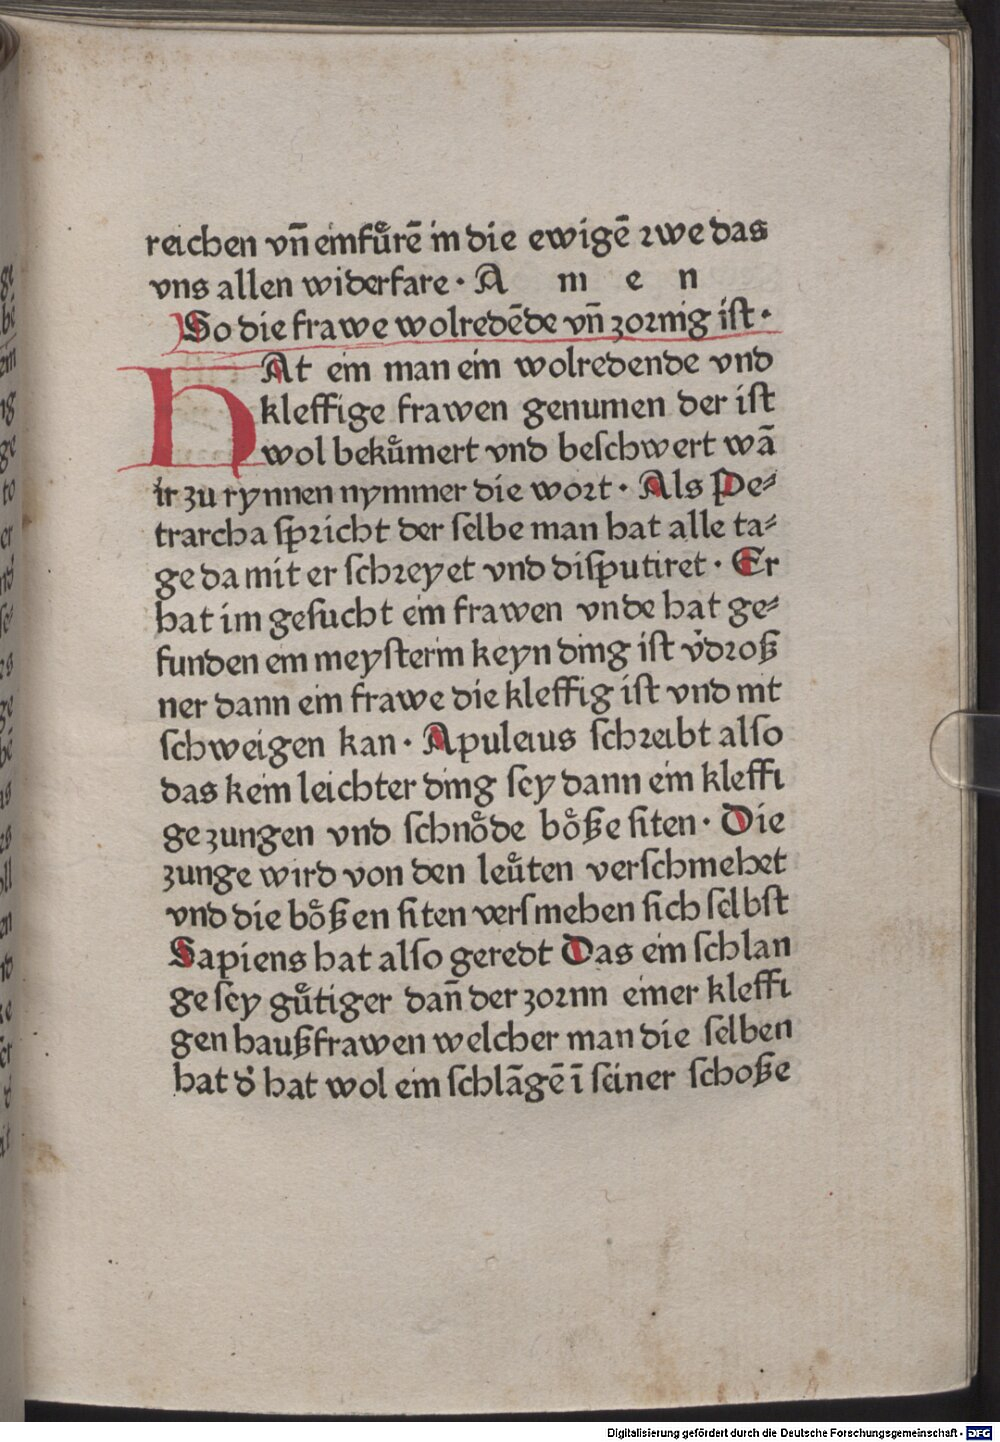 reichen vn̄ einfůrē in die ewigē rwe das
vns allen widerfare · A m e n
So die frawe wolredēde vn̄ zornig ist ·
HAt ein man ein wolredende vnd
kleffige frawen genumen der ist
wol bekům̃ert vnd beschwert wā
ir zu rynnen nymmer die wort · Als Pe⸗
trarcha spricht der selbe man hat alle ta⸗
ge da mit er schreyet vnd disputiret · Er
hat im gesucht ein frawen vnde hat ge⸗
funden ein meysterin keyn ding ist v̄droß
ner dann ein frawe die kleffig ist vnd nit
schweigen kan · Apuleius schreibt also
das kein leichter ding sey dann ein kleffi
ge zungen vnd schnoͤde boͤße siten · Die
zunge wird von den leuͤten verschmehet
vnd die boͤßen siten versmehen sich selbst
Sapiens hat also geredt Das ein schlan
ge sey guͤtiger dan̄ der zornn einer kleffi
gen haußfrawen welcher man die selben
hat d̛ hat wol ein schlāgē ī seiner schoße
Digitalisierung gefördert durch die Deutsche Forschungsgemeinschaft - DFG